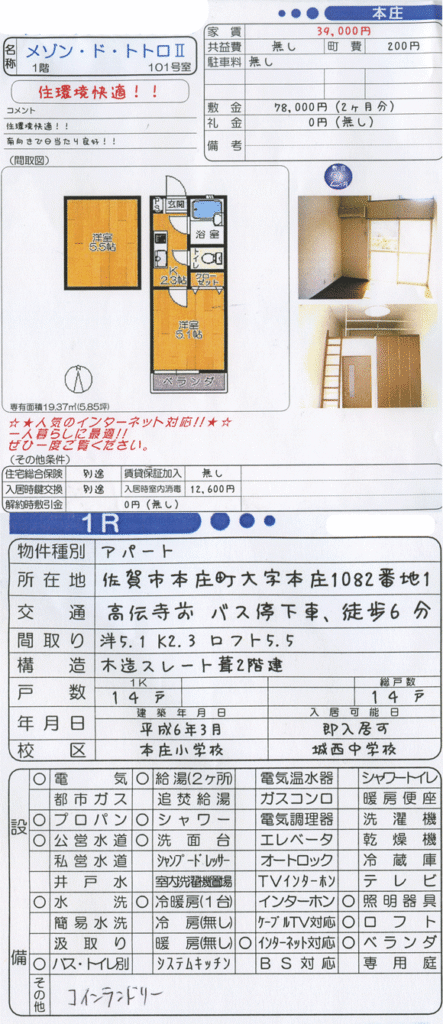 本庄
名称 メゾン・ド・トトロⅡ
1階 101号室
住環境快適!!
コメント
住環境快適!!
南向きで日当たり良好!!
家賃 39,000円
共益費 無し 町費 200円
駐車料 無し
敷金 78,000円(2ヶ月分)
礼金 0円(無し)
備考
(間取図)
洋室
5.5帖
玄関
浴室
トイレ
K
2.3帖
クローゼット
洋室
5.1帖
ベランダ
専有面積19.37㎡(5.85坪)
☆★人気のインターネット対応!!★☆
一人暮らしに最適!!
ぜひ一度ご覧ください。
(その他条件)
住宅総合保険 別途 賃貸保証加入 無し
入居時鍵交換 別途 入居時室内消毒 12,600円
解約時敷引金 0円(無し)
1R
物件種別 アパート
所在地 佐賀市本庄町大字本庄1082番地1
交通 高伝寺前 バス停下車、徒歩6分
間取り 洋5.1 K2.3 ロフト5.5
構造 木造スレート葺2階建
戸数 1K 14戸 総戸数 14戸
年月日 建築年月日 平成6年3月 入居可能日 即入居可
校区 本庄小学校 城西中学校
設備
○電気 ○給湯(2ヶ所) 電気温水器 シャワートイレ
都市ガス 追焚給湯 ガスコンロ 暖房便座
○プロパン ○シャワー 電気調理器 洗濯機
○公営水道 ○洗面台 エレベータ 乾燥機
私営水道 シャンプードレッサー オートロック 冷蔵庫
井戸水 室内洗濯機置場 TVインターホン テレビ
○水洗 ○冷暖房(1台) インターホン ○照明器具
簡易水洗 冷房(無し) ケーブルTV対応 ○ロフト
汲取り 暖房(無し) ○インターネット対応 ○ベランダ
○バス・トイレ別 システムキッチン BS対応 専用庭
その他 コインランドリー